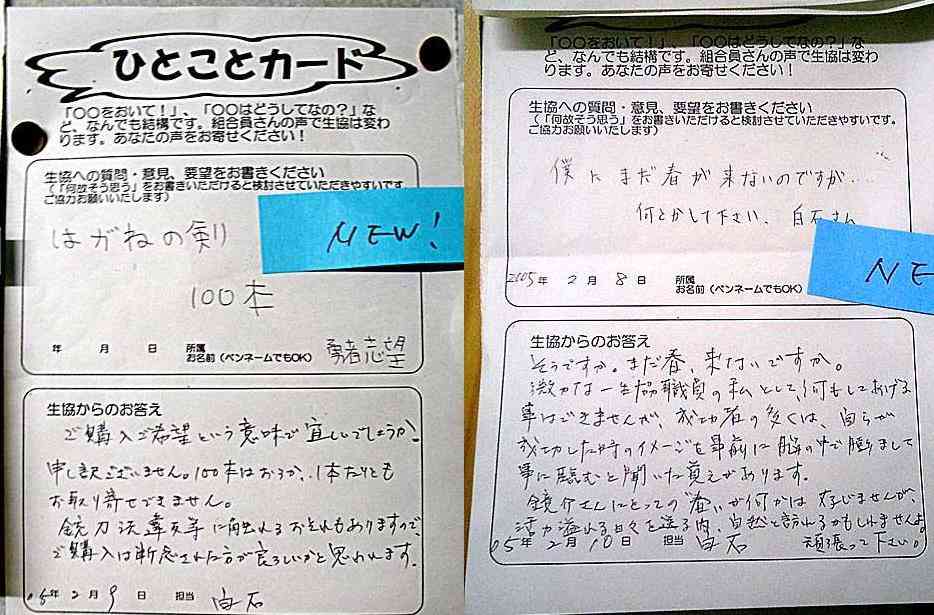 ひとことカード
「〇〇をおいて！」、「〇〇はどうしてなの？」な
ど、なんでも結構です。組合員さんの声で生協は変わ
ります。あなたの声をお寄せください！
生協への質問・意見、要望をお書きください
（「何故そう思う」をお書きいただけると検討させていただきやすいです。
ご協力お願いいたします）
はがねの剣
NEW!
100本
年 月 日 所属
お名前（ペンネームでもOK） 勇者志望
生協からのお答え
ご購入ご希望という意味で宜しいでしょうか。
申し訳ございません。100本はおろか、1本たりとも
お取り寄せできません。
銃刀法違反等に触れるおそれもありますので、
ご購入は断念された方が良ろしいかと思われます。
05年 2月 9日 担当 白石
「〇〇をおいて！」、「〇〇はどうしてなの？」な
ど、なんでも結構です。組合員さんの声で生協は変わ
ります。あなたの声をお寄せください！
生協への質問・意見、要望をお書きください
（「何故そう思う」をお書きいただけると検討させていただきやすいです。
ご協力お願いいたします）
僕にまだ春が来ないのですが....
何とかして下さい、白石さん
NE
2005年 2月 8日 所属
お名前（ペンネームでもOK）
生協からのお答え
そうですか。まだ春、来ないですか。
微力な一生協職員の私として、何もしてあげる
事はできませんが、成功者の多くは、自らが
成功した時のイメージを事前に脳の中で膨りまして
事に臨むと聞いた覚えがあります。
鏡介さんにとっての春が何かは存じませんが、
活力溢れる日々を送る内、自然と訪れるかもしれませんよ。
頑張って下さい。
05年 2月 10日 担当 白石